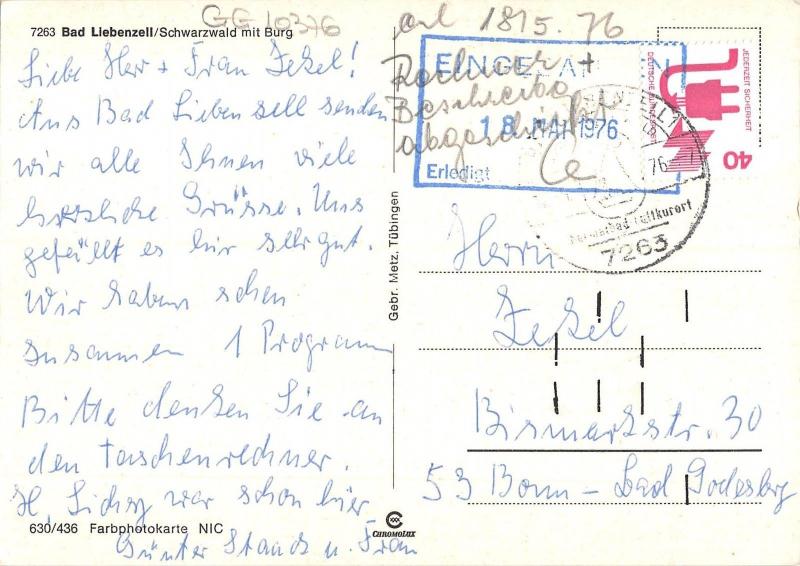 GG 10376
7263 Bad Liebenzell/Schwarzwald mit Burg
Liebe Herr + Frau Zekel!
Aus Bad Liebenzell senden
wir alle Ihnen viele
herzliche Grüsse. Uns
gefällt es hir sehr gut.
Wir haben schon
zusammen 1 Programm
Bitte denken Sie an
den Taschenrechner.
H. war schon hier
Günter u. Frau
630/436 Farbphotokarte NIC
CHROMOLUX
Gebr. Metz, Tübingen
erl 18/5. 76
Rechner +
abgeschickt
EINGEGANGEN
18. MAI 1976
Erledigt
JEDERZEIT SICHERHEIT
DEUTSCHE BUNDESPOST
40
76
Luftkurort
7263
Herrn
Zekel
Bismarkstr. 30
53 Bonn - Bad Godesberg